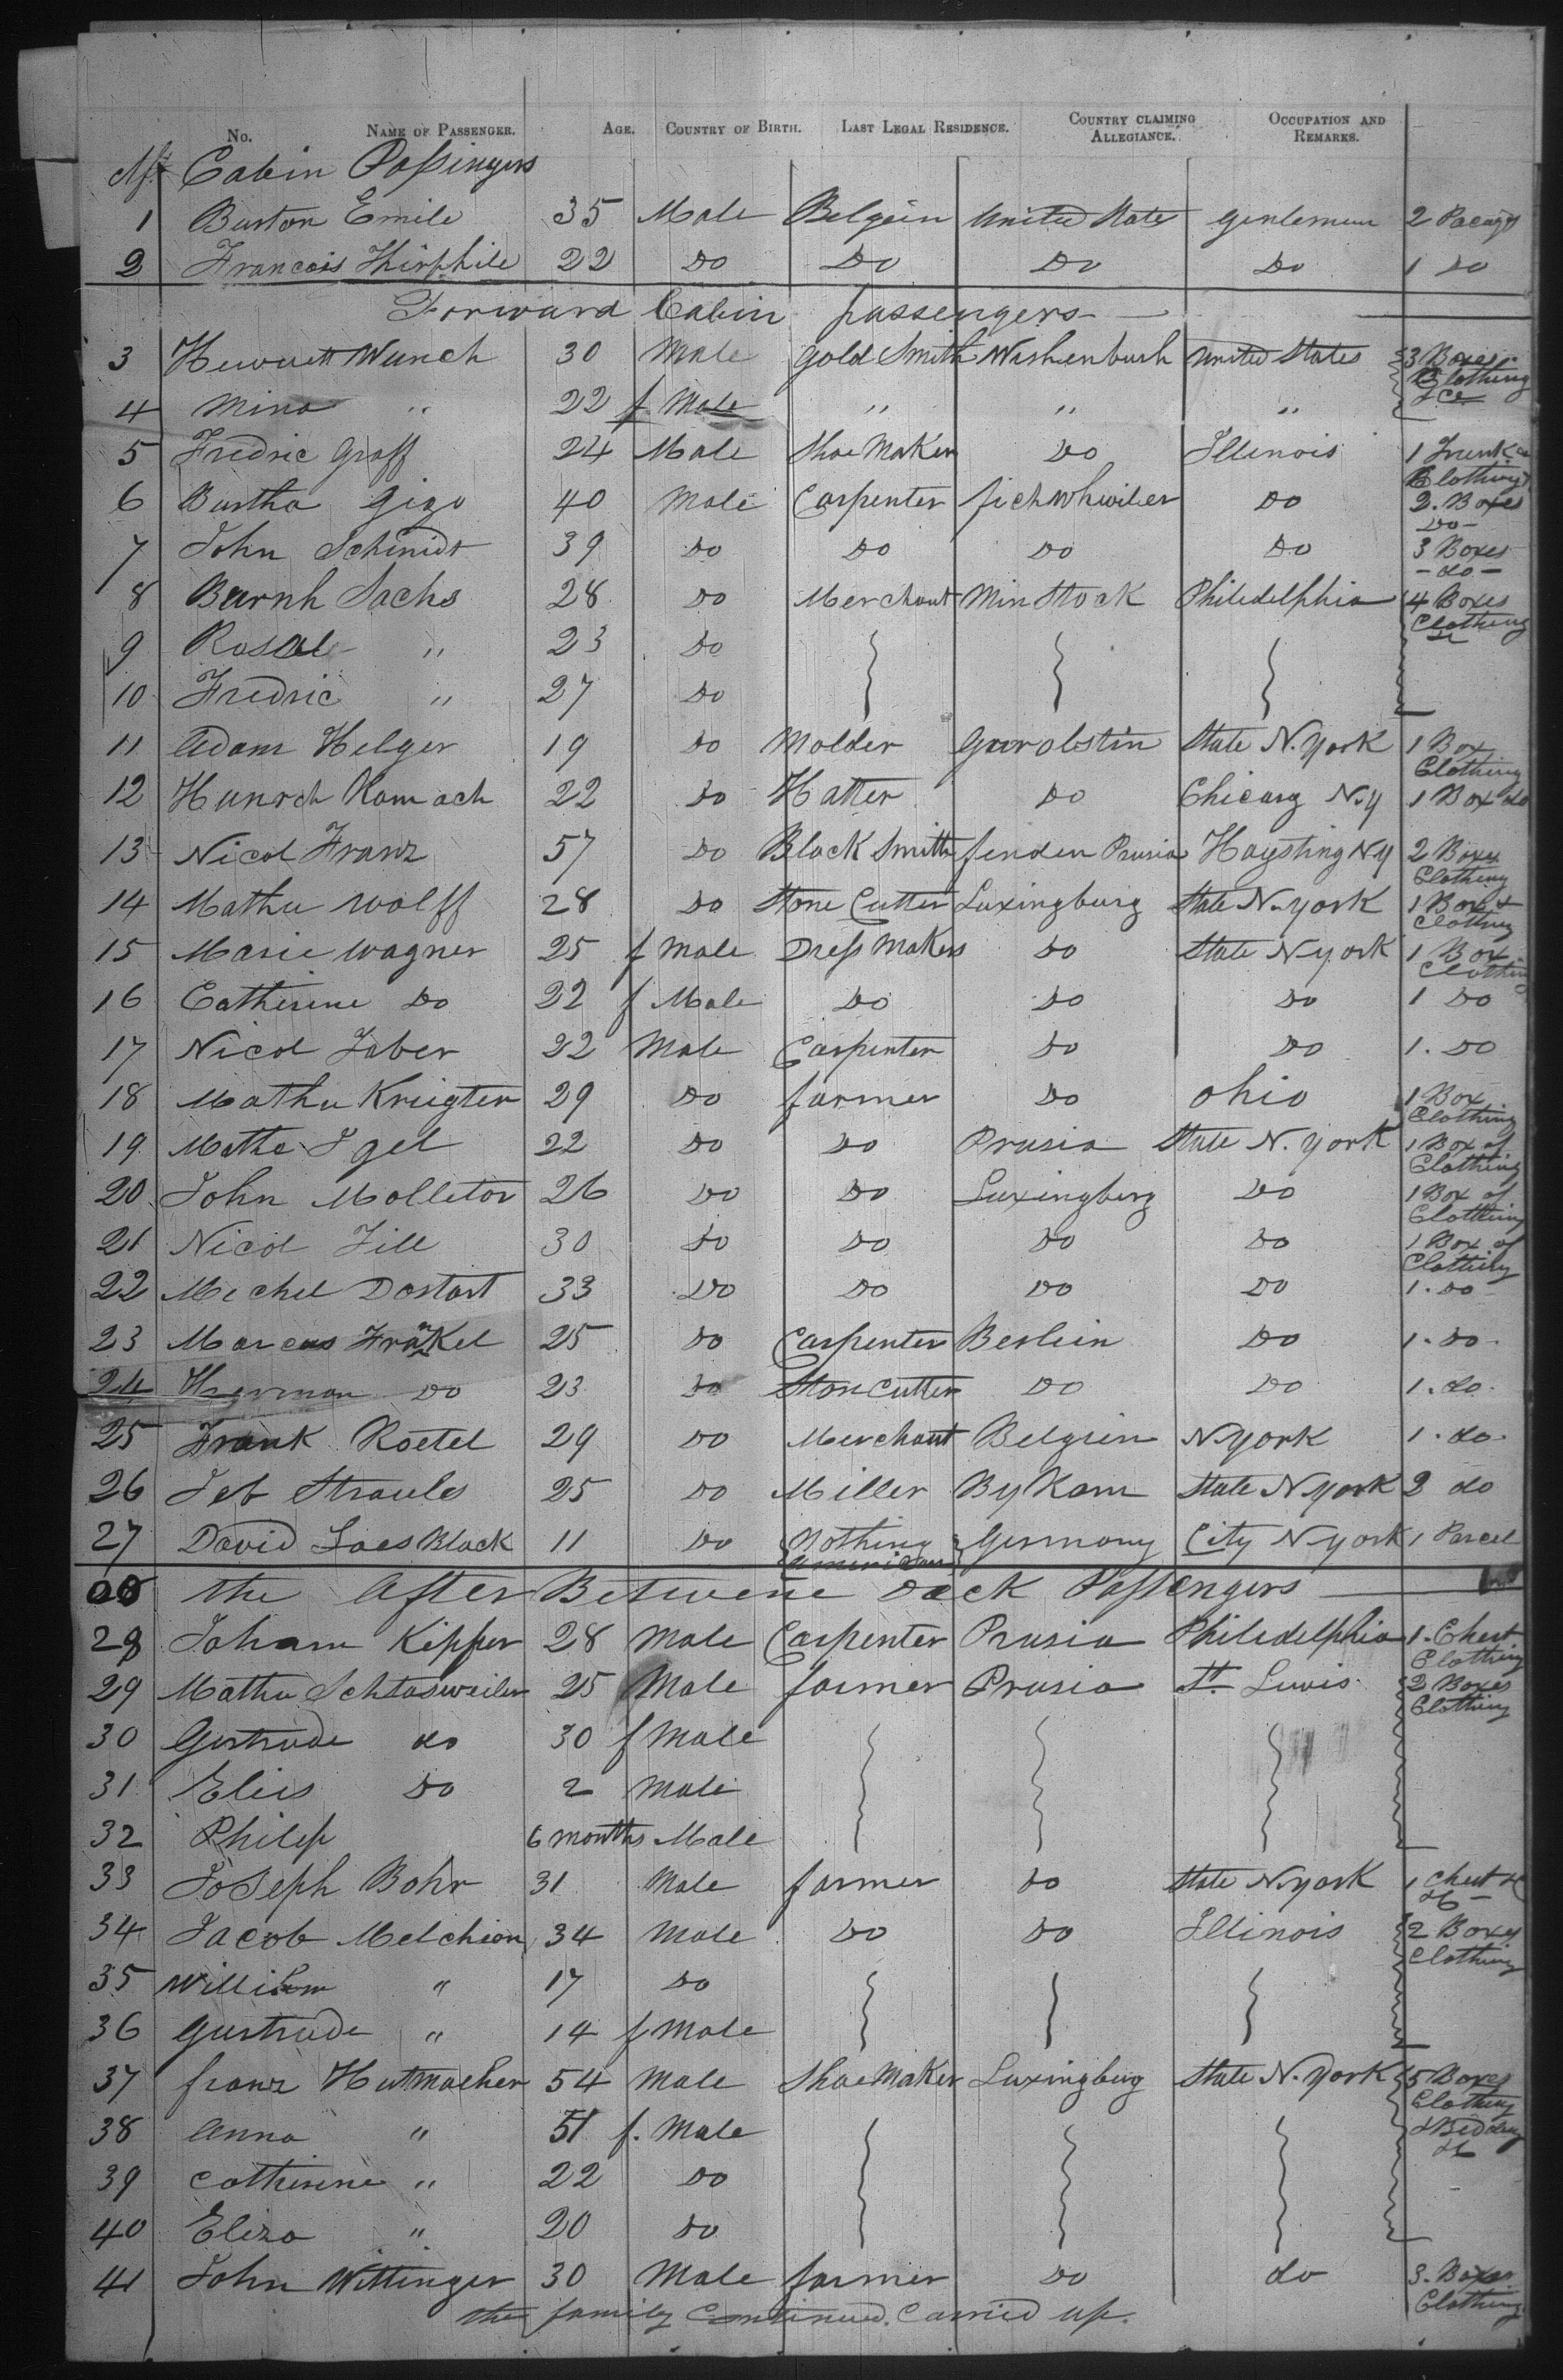 No. NAME OF PASSENGER. AGE. COUNTRY OF BIRTH. LAST LEGAL RESIDENCE. COUNTRY CLAIMING ALLEGIANCE. OCCUPATION AND REMARKS.
Cabin Passingers
1 Burton Emile 35 Male Belgein United States Gentlemen 2
2 Francois 22 Do Do Do Do 1 do
Forward Cabin passengers
3 Wunch 30 Male Gold Smith Washenbush United States 3 Boxes Clothing &ce
4 Mina " 22 f Male " " "
5 Fredric Graff 24 Male Shoe Maker Do Illinois 1 Trunk Clothing
6 Burtha Gigo 40 Male Carpenter Do 2. Boxes Do
7 John Schmidt 39 Do Do Do Do 3 Boxes - do -
8 Barnh Sachs 28 Do Merchant Min Stock Philidelphia 4 Boxes Clothing
9 Rosal " 23 Do
10 Fredric " 27 Do
11 Adam Helger 19 Do Molder Garolstin State N. York 1 Box Clothing
12 Hunrch Kamach 22 Do Hatter Do Chicarg N.y 1 Box do
13 Nicol Franz 57 Do Black Smith Prusia Haysting N.y 2 Boxes Clothing
14 Mathu Wolff 28 Do Stone Cutter Luxingburg State N. york 1 Box & Clothing
15 Marie Wagner 25 f Male Dress Makers Do State N york 1 Box Clothing
16 Catherine Do 22 f Male Do Do Do 1 Do
17 Nicol Faber 22 Male Carpenter Do Do 1. Do
18 Mathu Kriegter 29 Do farmer Do Ohio 1 Box Clothing
19 Mathe Igel 22 Do Do Prusia State N. York 1 Box of Clothing
20 John Molletor 26 Do Do Luxingburg Do 1 Box of Clothing
21 Nicol Fill 30 Do Do Do Do 1 Box of Clothing
22 Michel Dostart 33 Do Do Do Do 1. Do
23 Marcus Fränkel 25 Do Carpenter Berlein Do 1. Do
24 Herman Do 23 Do Stone Cutter Do Do 1. do
25 Frank Roetel 29 Do Merchant Belgien N york 1. do
26 Straules 25 Do Miller By Kam State N york 2 do
27 David Black 11 Do Nothing American Germany City N york 1 Parcel
the After Betwene Deck Passengers
28 Joham Kipper 28 Male Carpenter Prusia Philidelphia 1. Chest Clothing
29 Mathu Schtasweiler 25 Male farmer Prusia St. Luwis 2 Boxes Clothing
30 Gertrude do 30 f Male
31 Elies Do 2 Male
32 Philip 6 months Male
33 Joseph Bohr 31 Male farmer Do State N. york 1 Chest &c
34 Jacob Melchion 34 Male Do Do Illinois 2 Boxes Clothing
35 Willihm " 17 Do
36 Gurtrude " 14 f Male
37 franz Hutmacher 54 Male Shoe Maker Luxingburg State N. York 5 Boxes Clothing & Bedding
38 Anna " 51 f. Male
39 Catherine " 22 Do
40 Eliza " 20 Do
41 John Wittinger 30 Male farmer Do do 3. Boxes Clothing
the family Continued. Carried up.